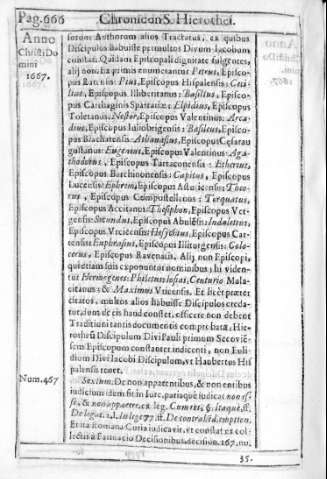 Pag. 666 Chronicon S. Hierothei.
Anno
Christi Do
mini
1667.
forum Authorum alios Tractatus, ex quibus
Discipulos habuisse permultos Divum Iacobum
constat. Quidam Episcopali dignitate fulgentes,
alij non. Ex primis enumerantur Petrus, Episco-
pus Pius, Episcopus Hispalensis: Ceci-
lius, Episcopus Illiberitanus: Basilius, Episco-
pus Carthaginis Spartariæ: Elpidius, Episcopus
Toletanus. Nestor, Episcopus Valentinus: Arca-
dius, Episcopus Iuliobrigensis: Basileus, Episco-
pus Athanasius, Episcopus Cæsarau
gustanus: Eugenius, Episcopus Valentinus: Aga-
thodorus, Episcopus Tarraconensis: Etherius,
Episcopus Barchinonensis: Capitus, Episcopus
Lucensis: Ephrem, Episcopus Asturicensis:
Episcopus Compostellanus: Torquatus,
Episcopus Accitanus: Thesiphon, Episcopus Ver-
gensis: Secundus, Episcopus Abulensis: Indaletius,
Episcopus Vrcicensis: Hesychius, Episcopus Car-
tensis: Euphrasius, Episcopus Illiturgensis: Calo-
cerus, Episcopus Ravenaia. Alij non Episcopi,
quietiam suis exponuntur nominibus, hi viden-
tur Hermogenes: Philetus Iosias, Centurio Mala-
citanus: & Maximus Vticensis. Et licèt præter
citatos, multos alios habuisse Discipulos creda-
tur, dum de eis haud constet, officere non debent
Traditioni tantis documentis comprobatæ, Hie-
rotheũ Discipulum Divi Pauli primum Secovié-
sem Episcopum constanter indicenti, non
dium Divi Iacobi Discipulum, vt Haubertus His
palensis tenet.
Num. 467
Sextum: De non apparentibus, & non entibus
iudicium idem fit in Iure, pariaquè iudicat non es-
se, & non apparere, ex leg. Cum res, §. itaquè, ff.
De legat. 1. l. In lege 77. ff. De contrahẽd. emption.
Et ita Romana Curia iudicavit, et constat ex col-
lectis à Farinacio Decisionibus, decision. 167. nu.
35.